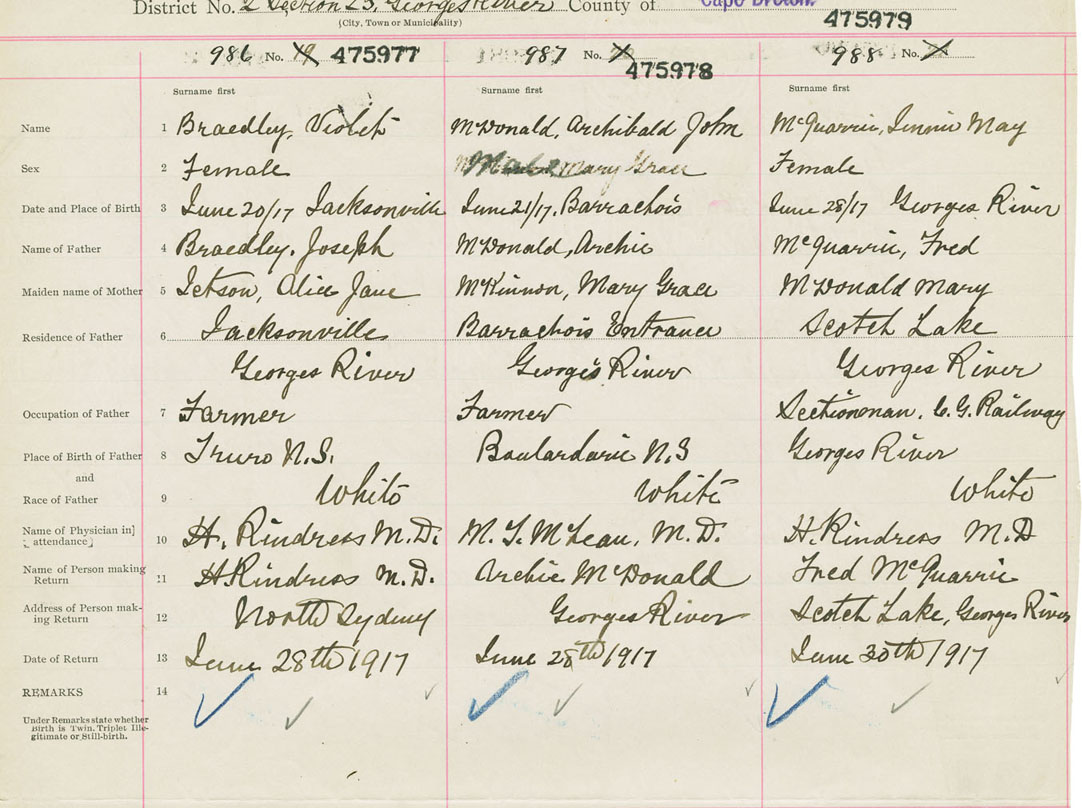 District No. 2 Section 23, Georges River County of Cape Breton.
(City, Town or Municipality)
475979
986 No. 19 475977 987 No. 475978 988 No.
Surname first Surname first Surname first
Name 1 Braedley, Violet McDonald, Archibald John McQuarrie, Jennie May
Sex 2 Female Male Mary Grace Female
Date and Place of Birth 3 June 20/17 Jacksonville June 21/17, Barrachois June 28/17 Georges River
Name of Father 4 Braedley, Joseph McDonald, Archie McQuarrie, Fred
Maiden name of Mother 5 Jetson, Alice Jane McKinnon, Mary Grace McDonald Mary
Residence of Father 6 Jacksonville Barrachois Entrance Scotch Lake
Georges River Georges River Georges River
Occupation of Father 7 Farmer Farmer Sectionman, C.G. Railway
Place of Birth of Father 8 Truro N.S. Boulardarie N.S Georges River
and
Race of Father 9 White White White
Name of Physician in]
[attendance] 10 H. Rindress M.D. M. T. McLean, M.D. H. Rindress M.D
Name of Person making
Return 11 H Rindress M.D. Archie McDonald Fred McQuarrie
Address of Person mak-
ing Return 12 North Sydney Georges River Scotch Lake, Georges River
Date of Return 13 June 28th 1917 June 28th 1917 June 30th 1917
REMARKS 14
Under Remarks state whether
Birth is Twin, Triplet Ille-
gitimate or Still-birth.